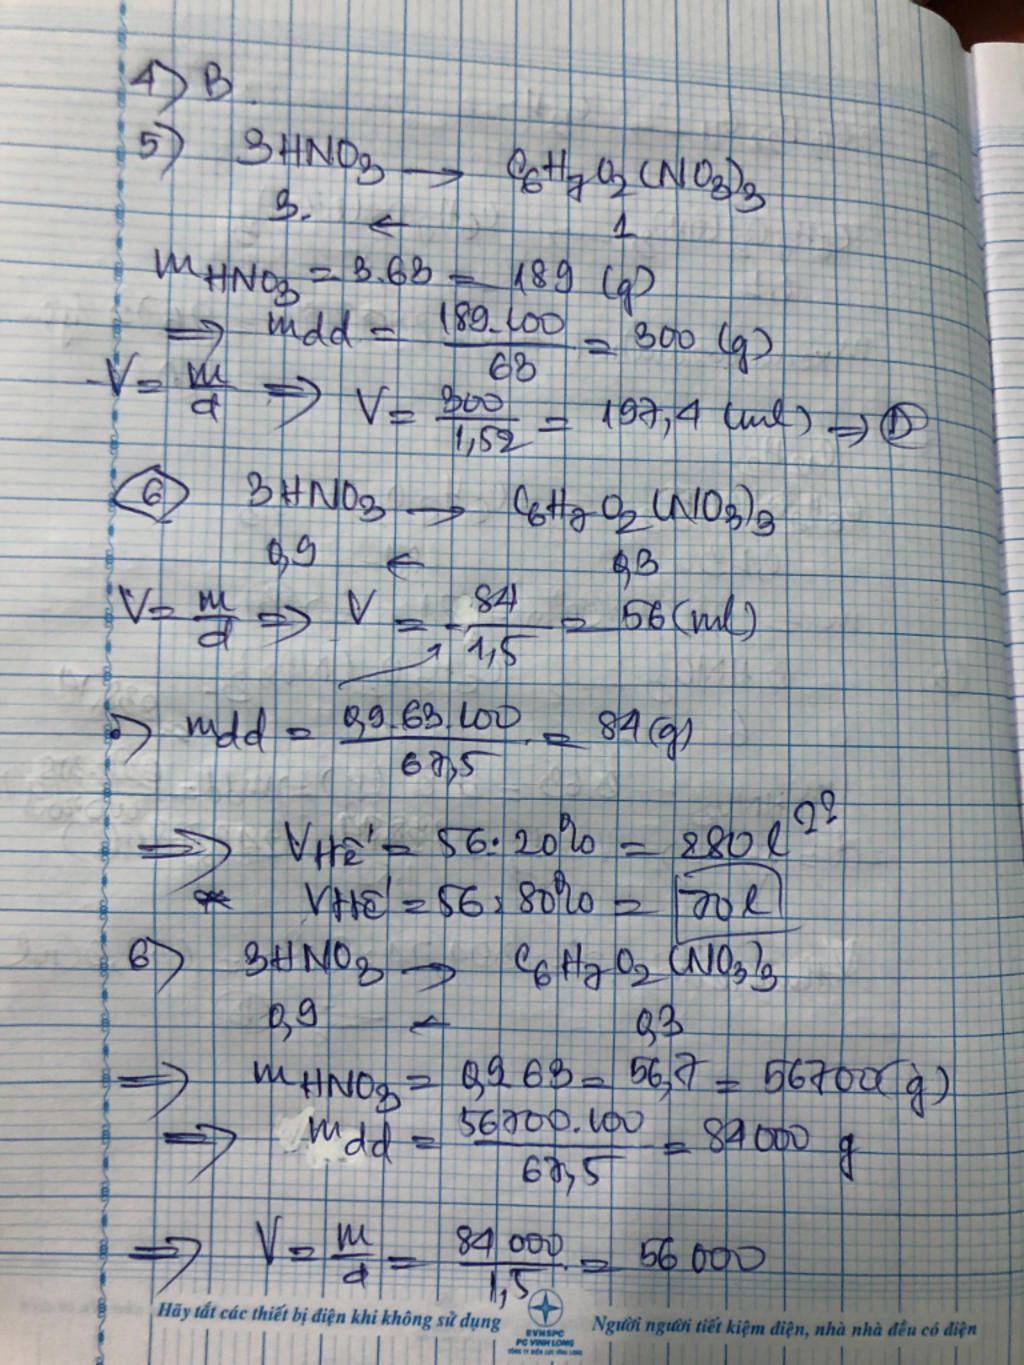 4) B.
5) 3HNO3 → C6H7O2(NO3)3
3. ← 1
mHNO3 = 3.63 = 189 (g)
⇒ mdd = 189.100/63 = 300 (g)
V = m/d ⇒ V = 300/1,52 = 197,4 (ml) → D
6) 3HNO3 → C6H7O2(NO3)3
0,9 ← 0,3
V = m/d ⇒ V = 84/1,5 = 56 (ml)
mdd = 0,9.63.100/67,5 = 84 (g)
⇒ VHĐ' = 56:20% = 280 l ??
* VHĐ' = 56:80% = 70 l
6) 3HNO3 → C6H7O2(NO3)3
0,9 ← 0,3
⇒ mHNO3 = 0,9 63 = 56,7 = 56700 (g)
⇒ mdd = 56700.100/67,5 = 84000 g
⇒ V = m/d = 84 000/1,5 = 56 000
Hãy tắt các thiết bị điện khi không sử dụng
EVNSPC
PC VINH LONG
Người người tiết kiệm điện, nhà nhà đều có điện